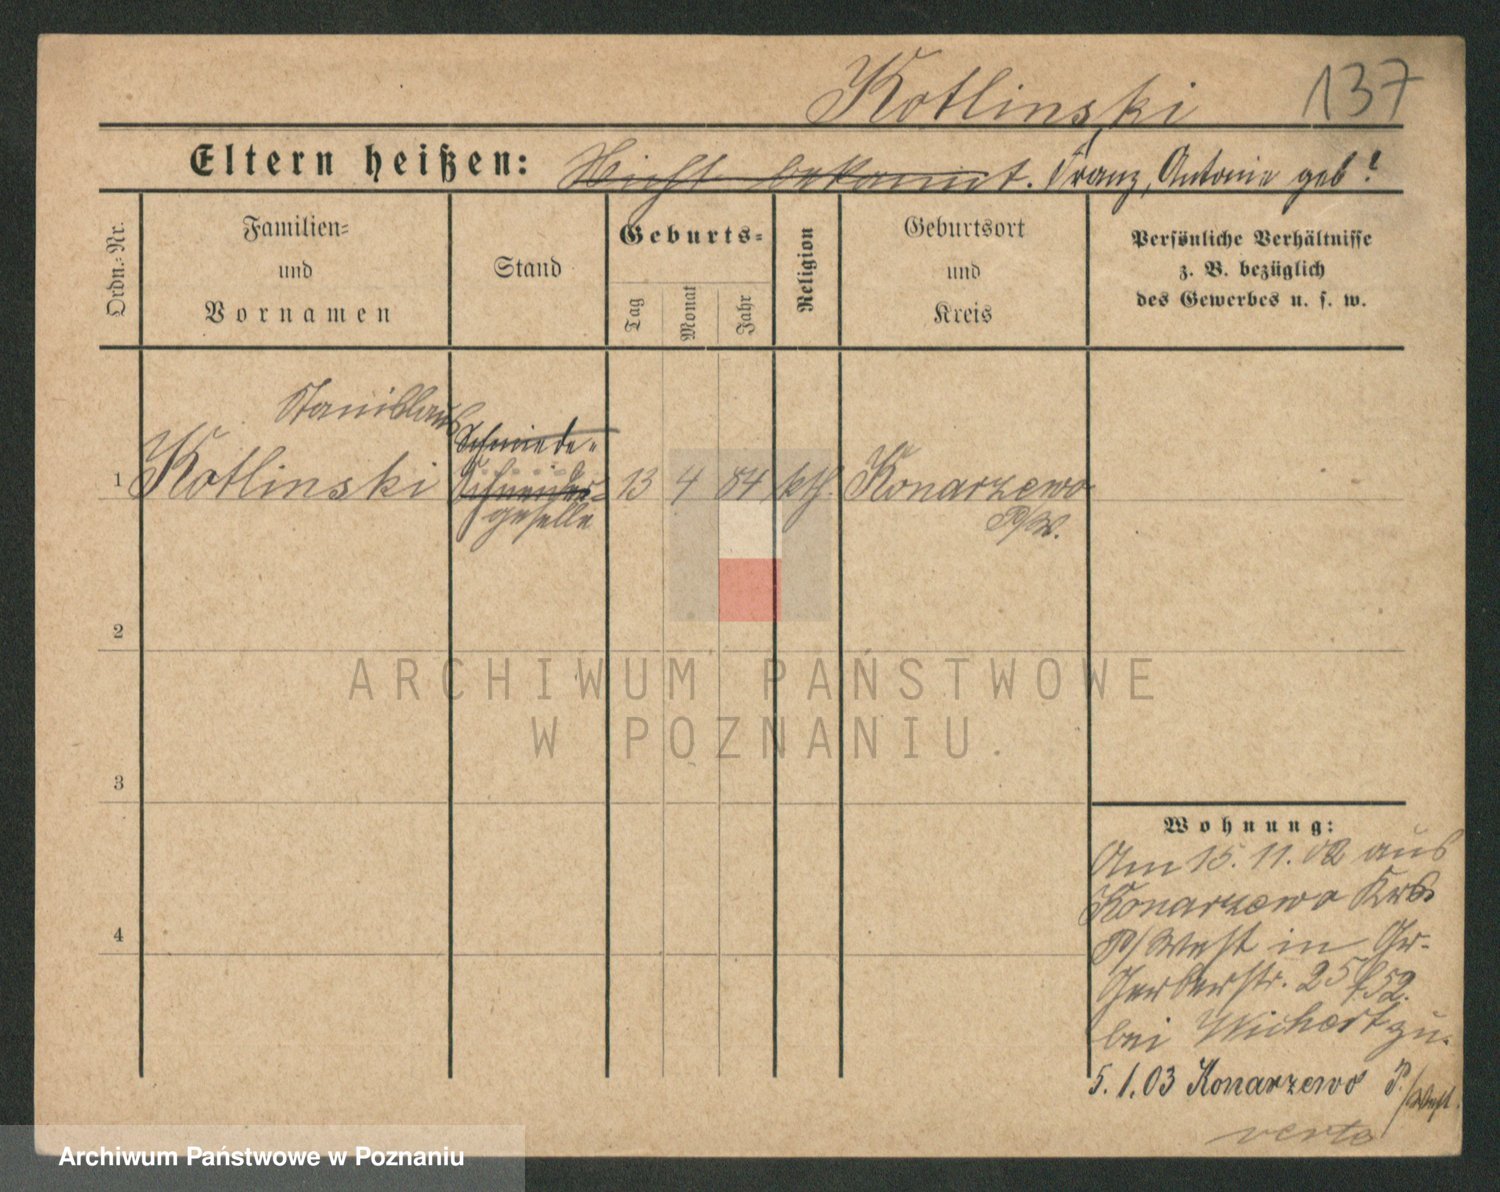 Kotlinski 137
Eltern heißen: Nicht bekannt. Franz, Antonie geb?
Ordn.-Nr.
Familien-
und
Vornamen
Stand
Geburts-
Tag
Monat
Jahr
Religion
Geburtsort
und
Kreis
Persönliche Verhältnisse
z. B. bezüglich
des Gewerbes u. s. w.
Stanislaus
Schmiede-
1 Kotlinski Schneider- 13 4 84 kth. Konarzewo
geselle P/W.
2
3
4
ARCHIWUM PAŃSTWOWE
W POZNANIU.
Wohnung:
Am 15. 11. 02 aus
Konarzewo Krs
P/West in Gr-
Gerberstr. 25
bei Wichert zu.
5. 1. 03 Konarzewo P./West.
verte
Archiwum Państwowe w Poznaniu